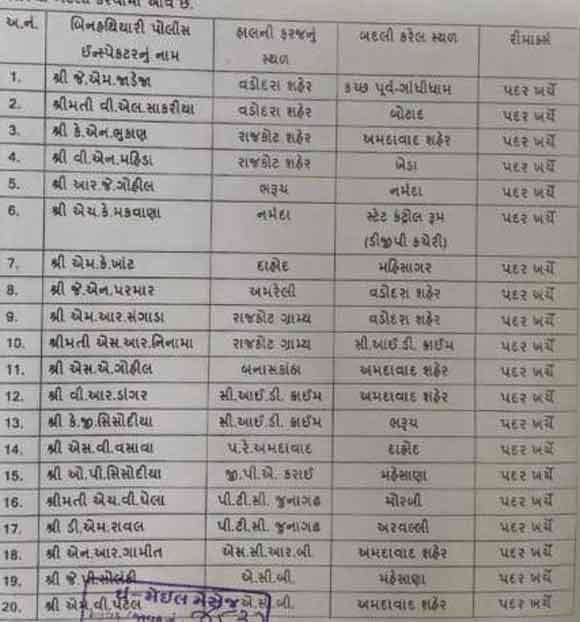 બદલી કરવામાં આવે છે.
અ.નં. બિનહથિયારી પોલીસ ઈન્સ્પેકટરનું નામ હાલની ફરજનું સ્થળ બદલી કરેલ સ્થળ રીમાર્ક્સ
1. શ્રી જે.એમ.જાડેજા વડોદરા શહેર કચ્છ પૂર્વ-ગાંધીધામ પદર ખર્ચે
2. શ્રીમતી વી.એલ.સાકરીયા વડોદરા શહેર બોટાદ પદર ખર્ચે
3. શ્રી કે.એન.ભુકાણ રાજકોટ શહેર અમદાવાદ શહેર પદર ખર્ચે
4. શ્રી વી.એન.મહિડા રાજકોટ શહેર ખેડા પદર ખર્ચે
5. શ્રી આર.જે.ગોહીલ ભરૂચ નર્મદા પદર ખર્ચે
6. શ્રી એચ.કે.મકવાણા નર્મદા સ્ટેટ કંટ્રોલ રૂમ પદર ખર્ચે
(ડીજીપી કચેરી)
7. શ્રી એમ.કે.ખાંટ દાહોદ મહિસાગર પદર ખર્ચે
8. શ્રી જે.એન.પરમાર અમરેલી વડોદરા શહેર પદર ખર્ચે
9. શ્રી એમ.આર.સંગાડા રાજકોટ ગ્રામ્ય વડોદરા શહેર પદર ખર્ચે
10. શ્રીમતી એસ.આર.નિનામા રાજકોટ ગ્રામ્ય સી.આઈ.ડી. ક્રાઈમ પદર ખર્ચે
11. શ્રી એસ.એ.ગોહીલ બનાસકાંઠા અમદાવાદ શહેર પદર ખર્ચે
12. શ્રી વી.આર.ડાંગર સી.આઈ.ડી. ક્રાઈમ અમદાવાદ શહેર પદર ખર્ચે
13. શ્રી કે.જી.સિસોદીયા સી.આઈ.ડી. ક્રાઈમ ભરૂચ પદર ખર્ચે
14. શ્રી એસ.વી.વસાવા પ.રે.અમદાવાદ દાહોદ પદર ખર્ચે
15. શ્રી ઓ.પી.સિસોદીયા જી.પી.એ. કરાઈ મહેસાણા પદર ખર્ચે
16. શ્રીમતી એચ.વી.ઘેલા પી.ટી.સી. જુનાગઢ મોરબી પદર ખર્ચે
17. શ્રી ડી.એમ.રાવલ પી.ટી.સી. જુનાગઢ અરવલ્લી પદર ખર્ચે
18. શ્રી એન.આર.ગામીત એસ.સી.આર.બી. અમદાવાદ શહેર પદર ખર્ચે
19. શ્રી જે.પી.સોલંકી એ.સી.બી. મહેસાણા પદર ખર્ચે
20. શ્રી એમ.વી.પટેલ એ.સી.બી. અમદાવાદ શહેર પદર ખર્ચે
ઘ-મેઈલ મેસેજ